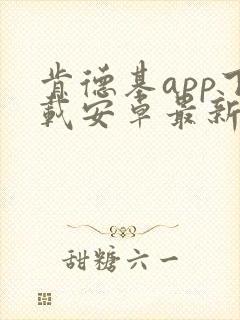 肯德基app下
载安卓最新
甜糖六一